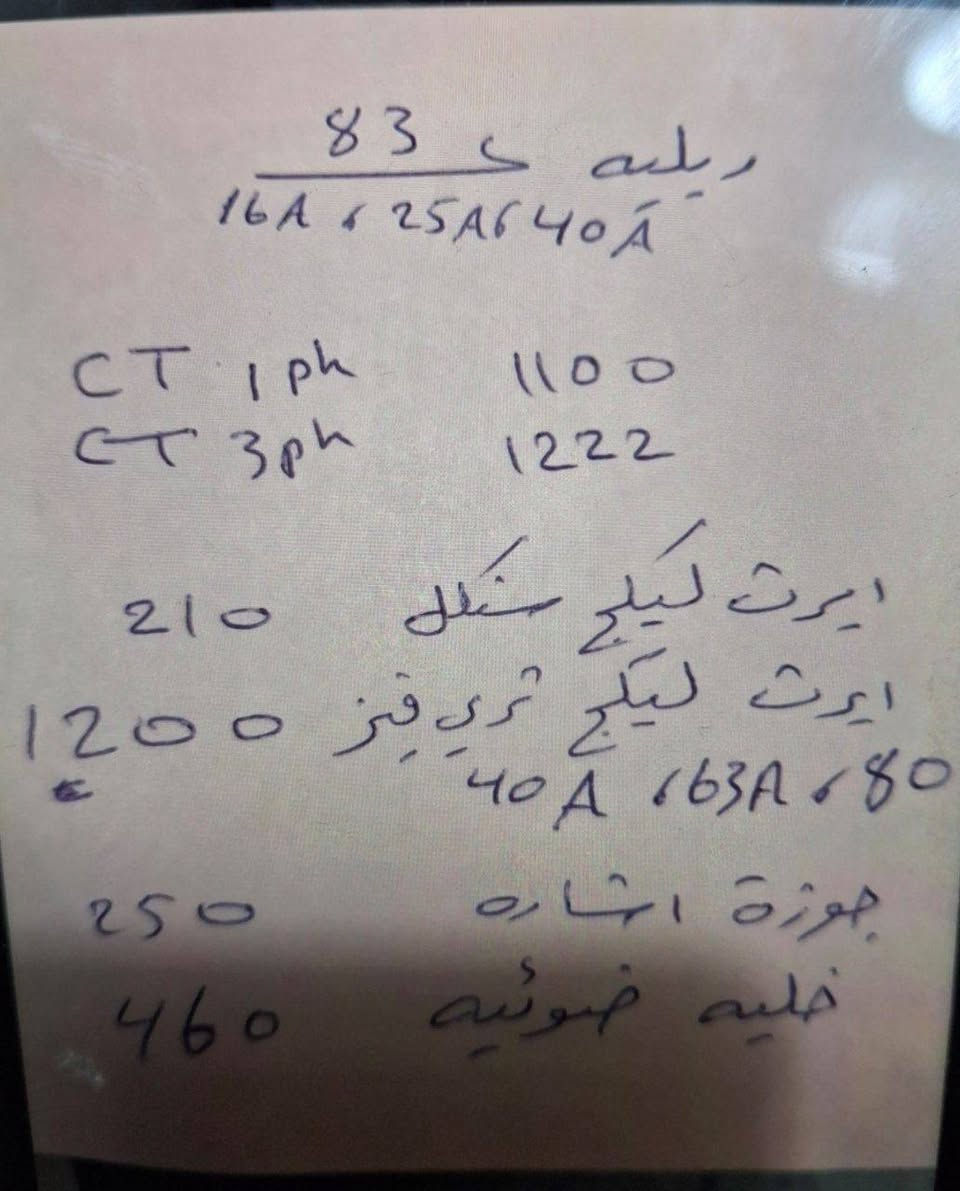 ريليه ك 83
16A ، 25A ، 40A
CT 1 ph 1100
CT 3 ph 1222
ايرث ليكج سنكل 210
ايرث ليكج ثري فيز 1200
40A ، 63A ، 80
جوزة اشاره 250
خليه ضوئيه 460